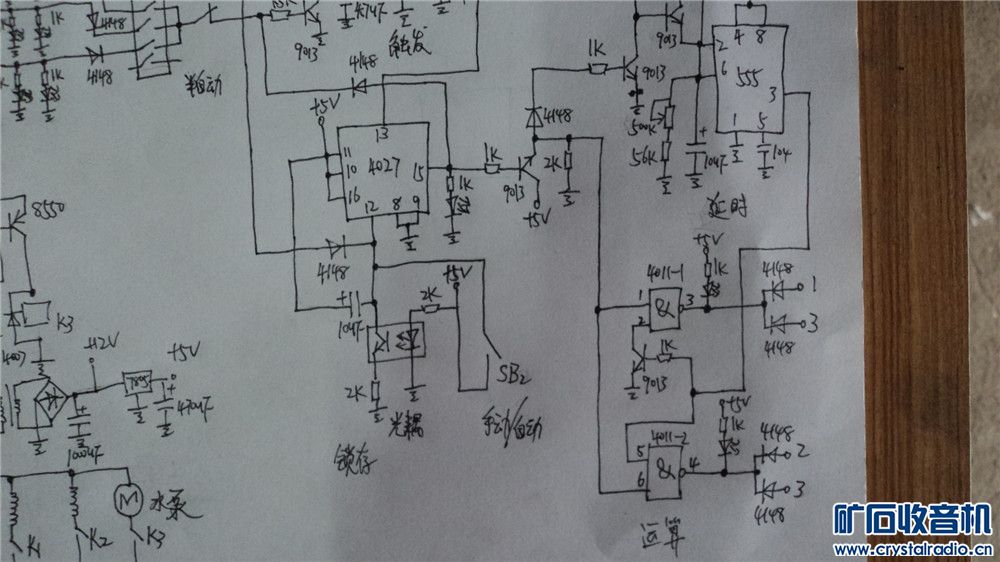 1K
4148
4148
1K
半自动
9013
470uF
触发
4148
+5V
13
11
10
16
4027
15
12
8
9
1K
1K
9013
+5V
2K
4148
1K
9013
9013
500K
56K
10uF
2
6
4
8
555
3
1
5
104
延时
8550
K3
4007
+12V
7805
+5V
1000uF
470uF
水泵
M
K1
K2
K3
4148
10uF
2K
2K
+5V
SB2
光耦
手动/自动
锁存
4011-1
1
2
&
3
+5V
1K
4148
1
3
4148
1K
9013
4011-2
5
6
&
4
+5V
1K
4148
2
3
4148
运算
矿石收音机
www.crystalradio.cn